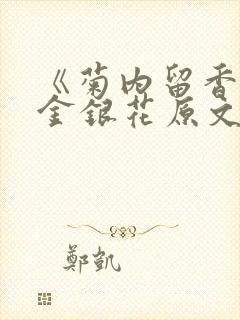 《菊内留香
金銀花原文
鄭凱